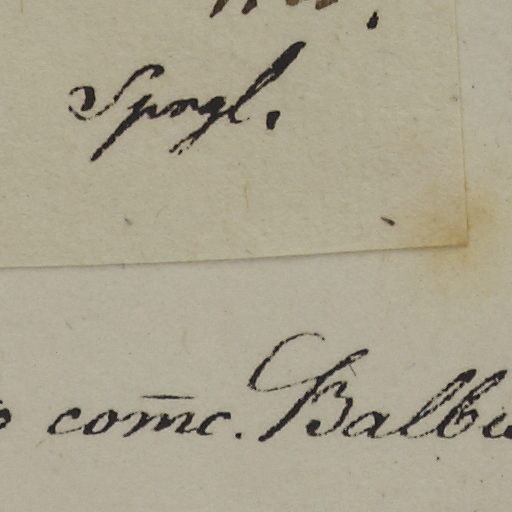 Sprgl.
com̅c. Balb